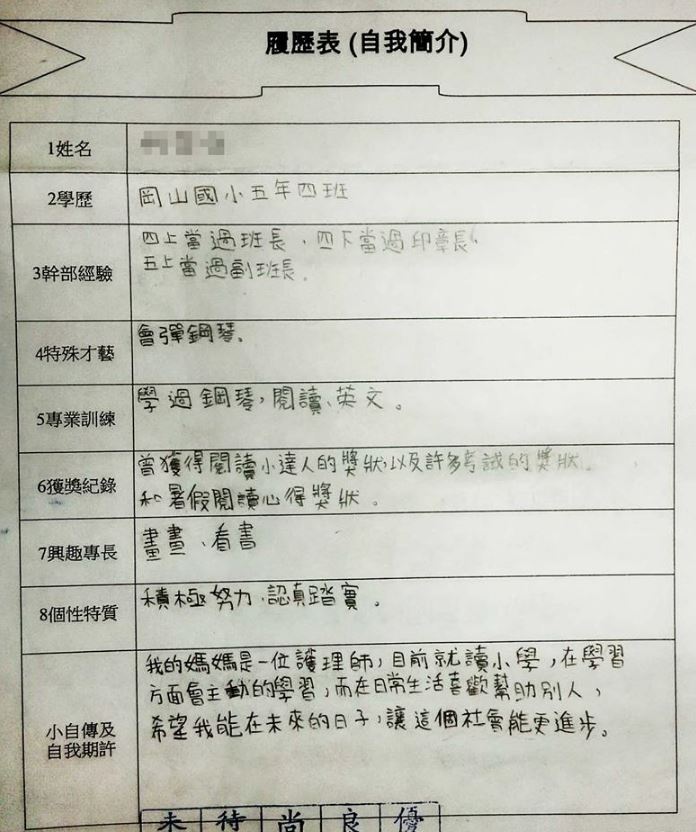 履歷表 (自我簡介)
1姓名
2學歷
岡山國小五年四班
3幹部經驗
四上當過班長、四下當過印章長,
五上當過副班長。
4特殊才藝
會彈鋼琴。
5專業訓練
學過鋼琴,閱讀、英文。
6獲獎紀錄
曾獲得閱讀小達人的獎狀,以及許多考試的獎狀
和暑假閱讀心得獎狀。
7興趣專長
畫畫、看書
8個性特質
積極努力、認真踏實。
小自傳及
自我期許
我的媽媽是一位護理師,目前就讀小學,在學習
方面會主動的學習,而在日常生活喜歡幫助別人,
希望我能在未來的日子,讓這個社會能更進步。
未 待 尚 良 優